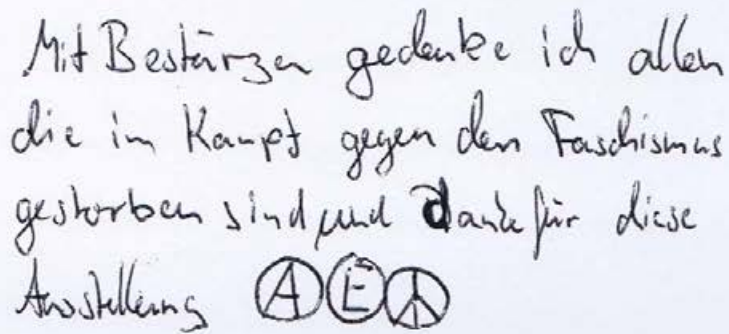 Mit Bestürzen gedenke ich allen
die im Kampf gegen den Faschismus
gestorben sind und danke für diese
Ausstellung Ⓐ Ⓔ ☮